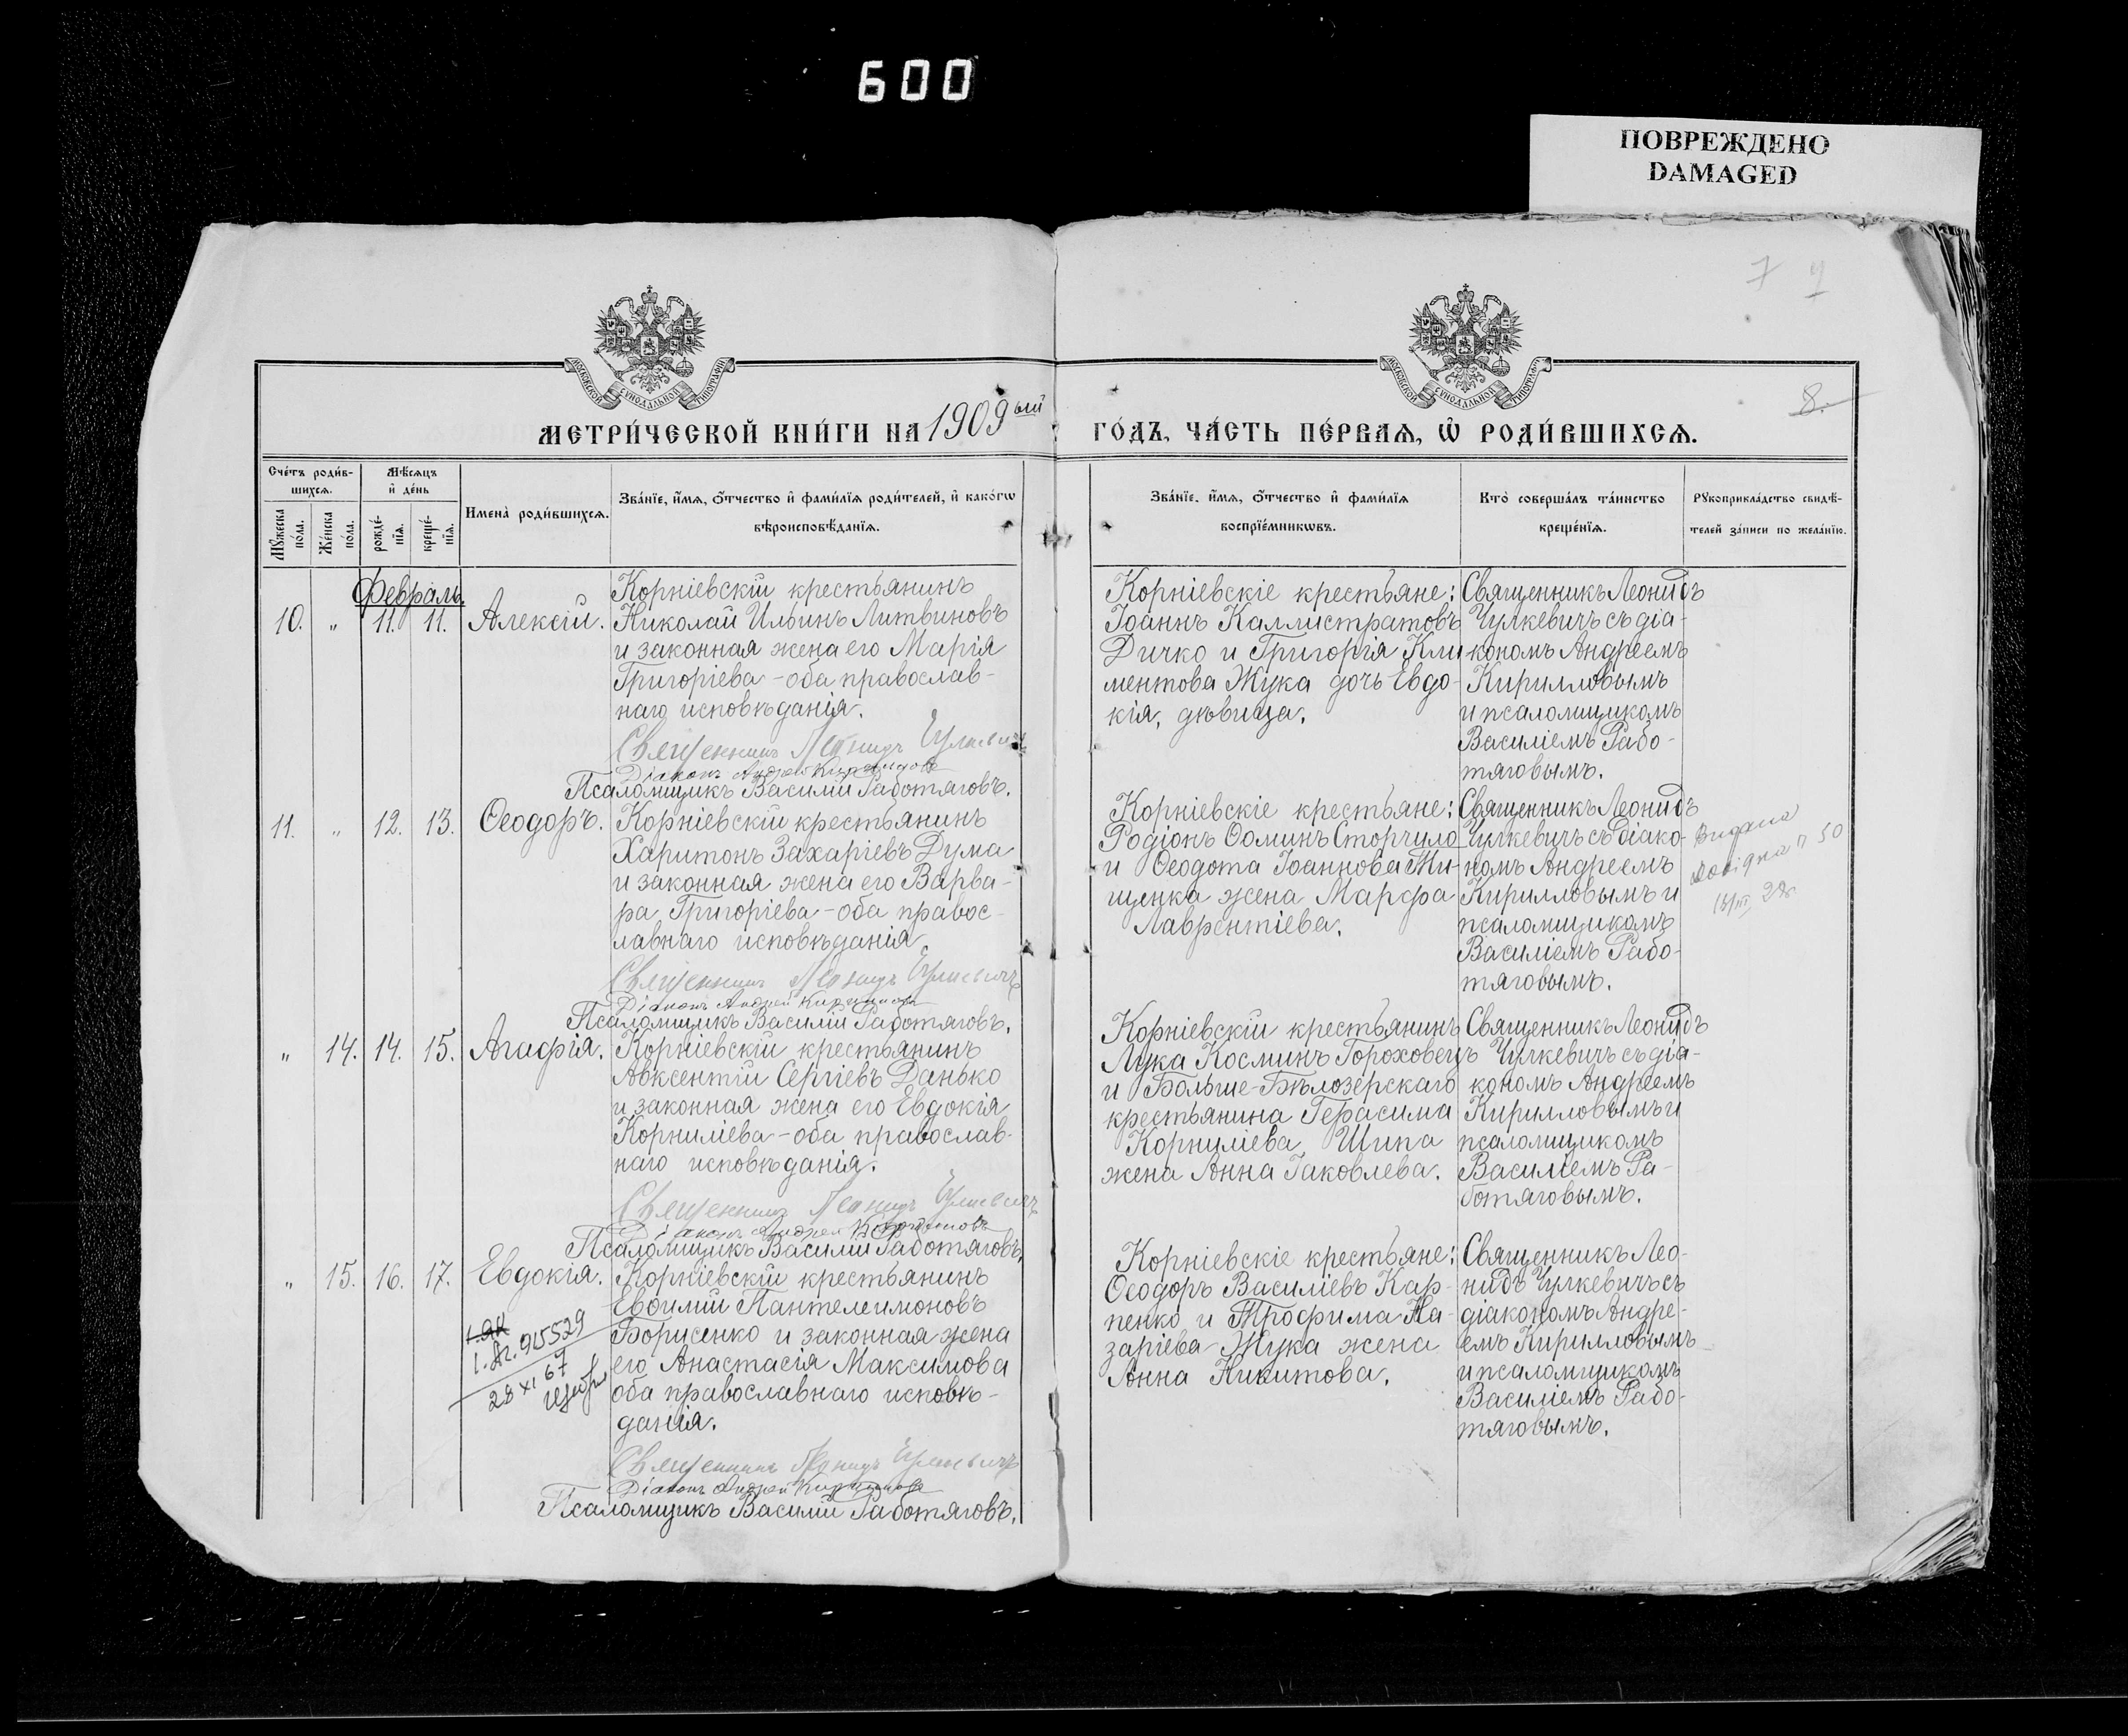 600
ПОВРЕЖДЕНО
DAMAGED
7 9
МОСКОВСКОЙ СУНОДАЛЬНОЙ ТИПОГРАФІИ
МОСКОВСКОЙ СУНОДАЛЬНОЙ ТИПОГРАФІИ
8.
МЕТРИ́ЧЕСКОЙ КНИ́ГИ НА 1909ый
ГО́ДЪ, ЧА́СТЬ ПЕ́РВАѦ, Ѡ҆ РОДИ́ВШИХСѦ.
Сче́тъ роди́в-
шихсѧ.
Мꙋ́жеска
по́ла.
Же́нска
по́ла.
Мѣ́сѧцъ
и҆ де́нь
рожде́-
нїѧ.
креще́-
нїѧ.
Имена̀ роди́вшихсѧ.
Зва́нїе, и҆́мѧ, ѻ҆́тчество и҆ фами́лїѧ роди́телей, и҆ како́гѡ
вѣроисповѣ́данїѧ.
Зва́нїе, и҆́мѧ, ѻ҆́тчество и҆ фами́лїѧ
воспрїе́мникѡвъ.
Кто̀ соверша́лъ та́инство
креще́нїѧ.
Рꙋкоприкла́дство свидѣ́-
телей за́писи по жела́нїю.
Февраль.
10. " 11. 11. Алексій.
Корніевскій крестьянинъ
Николай Ильинъ Литвиновъ
и законная жена его Марія
Григоріева - оба православ-
наго исповѣданія.
Священникъ Леонидъ Чулкевичъ
Діаконъ Андрей Кирилловъ
Псаломщикъ Василій Работяговъ.
Корніевскіе крестьяне:
Іоаннъ Каллистратовъ
Дичко и Григорія Кли-
ментова Жука дочь Евдо-
кія, дѣвица.
Священникъ Леонидъ
Чулкевичъ съ діа-
кономъ Андреемъ
Кирилловымъ
и псаломщикомъ
Василіемъ Рабо-
тяговымъ.
11. " 12. 13. Ѳеодоръ.
Корніевскій крестьянинъ
Харитонъ Захаріевъ Дума
и законная жена его Варва-
ра Григоріева - оба правос-
лавнаго исповѣданія.
Священникъ Леонидъ Чулкевичъ
Діаконъ Андрей Кирилловъ
Псаломщикъ Василій Работяговъ.
Корніевскіе крестьяне:
Родіонъ Ѳоминъ Сторчило
и Ѳеодота Іоаннова Ти-
щенка жена Марѳа
Лаврентіева.
Священникъ Леонидъ
Чулкевичъ съ діако-
номъ Андреемъ
Кирилловымъ и
псаломщикомъ
Василіемъ Рабо-
тяговымъ.
Видана
довідка п 50
" 14. 14. 15. Агафія.
Корніевскій крестьянинъ
Авксентій Сергіевъ Данько
и законная жена его Евдокія
Корниліева - оба православ-
наго исповѣданія.
Священникъ Леонидъ Чулкевичъ
Діаконъ Андрей Кирилловъ
Псаломщикъ Василій Работяговъ.
Корніевскій крестьянинъ
Лука Косминъ Гороховецъ
и Больше-Бѣлозерскаго
крестьянина Герасима
Корниліева Шипа
жена Анна Іаковлева.
Священникъ Леонидъ
Чулкевичъ съ діа-
кономъ Андреемъ
Кирилловымъ и
псаломщикомъ
Василіемъ Ра-
ботяговымъ.
" 15. 16. 17. Евдокія.
915529
28 XI 67
Корніевскій крестьянинъ
Евѳимій Пантелеимоновъ
Борисенко и законная жена
его Анастасія Максимова
оба православнаго исповѣ-
данія.
Священникъ Леонидъ Чулкевичъ
Діаконъ Андрей Кирилловъ
Псаломщикъ Василій Работяговъ.
Корніевскіе крестьяне:
Ѳеодоръ Василіевъ Кар-
пенко и Трофима На-
заріева Жука жена
Анна Никитова.
Священникъ Лео-
нидъ Чулкевичъ съ
діакономъ Андре-
емъ Кирилловымъ
и псаломщикомъ
Василіемъ Рабо-
тяговымъ.